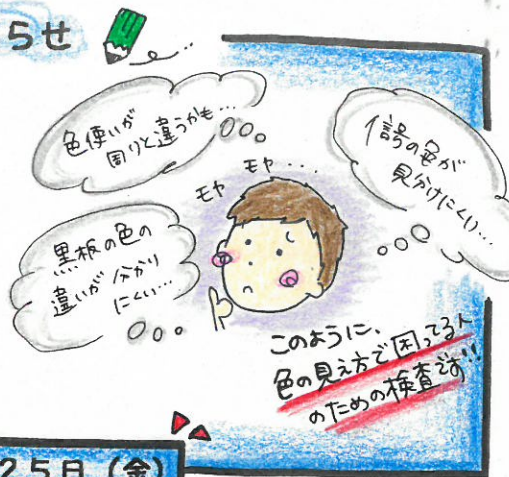 らせ
色使いが
周りと違うかも…
信号の色が
見分けにくい…
モヤ モヤ・・・
黒板の色の
違いが 分かり
にくい…
このように、
色の見え方で困ってる人
のための検査です!!
25日(金)